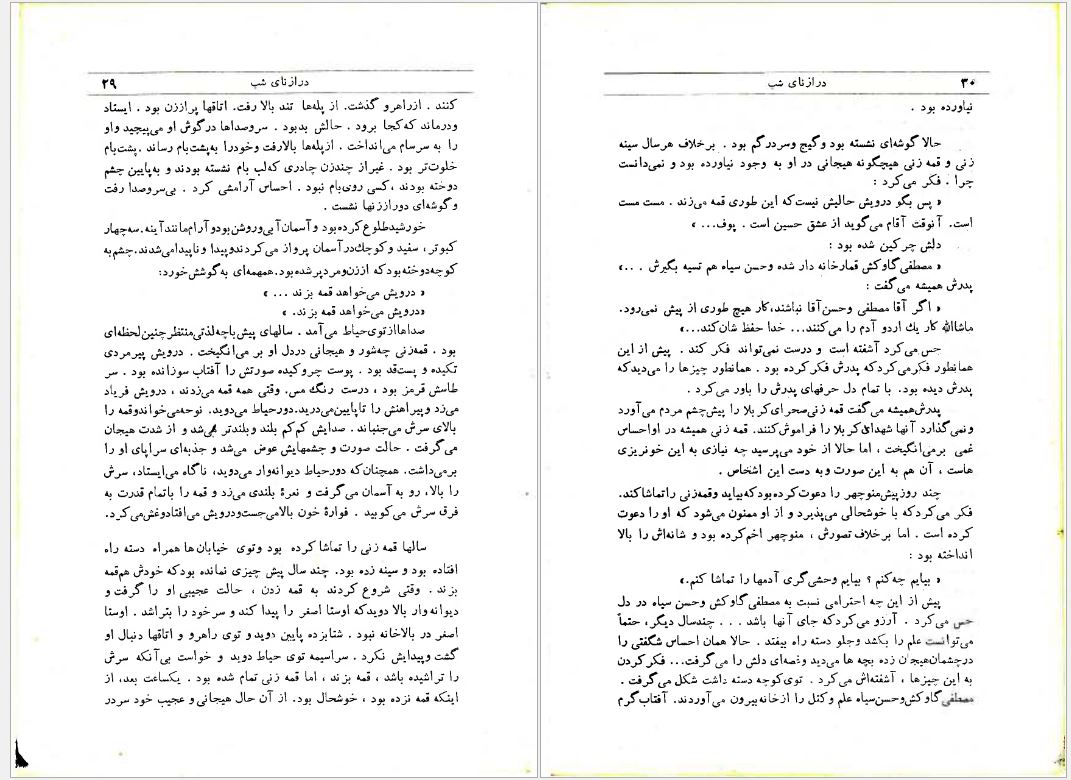 درازنای شب
۲۹
کنند . ازراهرو گذشت. از پله‌ها تند بالا رفت. اتاقها پراززن بود . ایستاد
ودرماند که‌کجا برود . حالش بدبود . سروصداها درگوش او می‌پیچید واو
را به سرسام می‌انداخت . ازپله‌ها بالارفت وخودرا به‌پشت‌بام رساند .پشت‌بام
خلوت‌تر بود . غیراز چندزن چادری که‌لب بام نشسته بودند و به‌پایین چشم
دوخته بودند ،کسی روی‌بام نبود . احساس آرامشی کرد . بی‌سروصدا رفت
و گوشه‌ای دورازز نها نشست .
خورشیدطلوع کرده‌بود و آسمان آبی‌وروشن‌بودو آرام‌مانندآینه.سه‌چهار
کبوتر ، سفید و کوچك‌در آسمان پرواز می‌کردندوپیدا و ناپیدامی‌شدند.چشم‌به
کوچه‌دوخته‌بودکه اززن‌ومرد پرشده‌بود.همهمه‌ای به‌گوشش‌خورد:
« درویش می‌خواهد قمه بزند ... »
«درویش می‌خواهد قمه بزند. »
صداهاازتوی‌حیاط می‌آمد . سالهای پیش‌باچه‌لذتی‌منتظرچنین‌لحظه‌ای
بود . قمه‌زنی چه‌شور و هیجانی دردل او بر می‌انگیخت . درویش پیرمردی
تکیده و پست‌قد بود . پوست چروکیده صورتش را آفتاب سوزانده بود . سر
طاسش قرمز بود ، درست رنگ مس. وقتی همه قمه می‌زدند ، درویش فریاد
می‌زد وپیراهنش را تاپایین‌می‌درید.دورحیاط می‌دوید. نوحه‌می‌خواندوقمه را
بالای سرش می‌جنباند . صدایش کم‌کم بلند وبلندتر می‌شد و از شدت هیجان
می‌گرفت . حالت صورت و چشمهایش عوض می‌شد و جذبه‌ای سراپای او را
برمی‌داشت. همچنان‌که دورحیاط دیوانه‌وار می‌دوید، ناگاه می‌ایستاد، سرش
را بالا، رو به آسمان می‌گرفت و نعرهٔ بلندی می‌زد و قمه را باتمام قدرت به
فرق سرش می‌کوبید . فوارهٔ خون بالامی‌جست‌ودرویش می‌افتادوغش‌می‌کرد.
سالها قمه زنی را تماشا کرده بود وتوی خیابان‌ها همراه دسته راه
افتاده بود و سینه زده بود. چند سال پیش چیزی نمانده بودکه خودش هم‌قمه
بزند . وقتی شروع کردند به قمه زدن ، حالت عجیبی او را گرفت و
دیوانه‌وار بالا دویدکه اوستا اصغر را پیدا کند و سرخود را بتراشد . اوستا
اصغر در بالاخانه نبود . شتابزده پایین دوید و توی راهرو و اتاقها دنبال او
گشت وپیدایش نکرد . سراسیمه توی حیاط دوید و خواست بی‌آنکه سرش
را تراشیده باشد ، قمه بزند ، اما قمه زنی تمام شده بود . یکساعت بعد، از
اینکه قمه نزده بود ، خوشحال بود. از آن حال هیجانی و عجیب خود سردر
۳۰
درازنای شب
نیاورده بود .
حالا گوشه‌ای نشسته بود وگیج وسردرگم بود . برخلاف هرسال سینه
زنی و قمه زنی هیچگونه هیجانی در او به وجود نیاورده بود و نمی‌دانست
چرا . فکر می‌کرد :
« پس بگو درویش حالیش نیست‌که این طوری قمه می‌زند . مست مست
است. آنوقت آقام می‌گوید از عشق حسین است . پوف... »
دلش چرکین شده بود :
« مصطفی‌گاوکش قمارخانه دار شده وحسن سیاه هم تسیه بگیرش . ..»
پدرش همیشه می‌گفت :
« اگر آقا مصطفی وحسن‌آقا نباشند،کار هیچ طوری از پیش نمی‌رود.
ماشاالله کار یك اردو آدم را می‌کنند... خدا حفظ شان‌کند...»
حس می‌کرد آشفته است و درست نمی‌تواند فکر کند . پیش از این
همانطور فکرمی‌کردکه پدرش فکرکرده بود . همانطور چیزها را می‌دیدکه
پدرش دیده بود. با تمام دل حرفهای پدرش را باور می‌کرد .
پدرش‌همیشه می‌گفت قمه زنی‌صحرای‌کربلا را پیش‌چشم مردم می‌آورد
ونمی‌گذارد آنها شهدای‌کربلا را فراموش‌کنند. قمه زنی همیشه در اواحساس
غمی برمی‌انگیخت ، اما حالا از خود می‌پرسید چه نیازی به این خونریزی
هاست ، آن هم به این صورت وبه دست این اشخاص .
چند روزپیش‌منوچهر را دعوت کرده‌بودکه‌بیاید وقمه‌زنی راتماشاکند.
فکر می‌کردکه با خوشحالی می‌پذیرد و از او ممنون می‌شود که او را دعوت
کرده است . اما برخلاف تصورش ، منوچهر اخم‌کرده بود و شانه‌اش را بالا
انداخته بود :
« بیایم چه‌کنم ؟ بیایم وحشی‌گری آدمها را تماشا کنم.»
پیش از این چه احترامی نسبت به مصطفی‌گاوکش وحسن سیاه در دل
حس می‌کرد . آرزو می‌کردکه جای آنها باشد . . . چندسال دیگر، حتماً
می‌توانست علم را بکشد وجلو دسته راه بیفتد . حالا همان احساس شگفتی را
درچشمان‌هیجان زده بچه ها می‌دید وغصه‌ای دلش را می‌گرفت... فکرکردن
به این چیزها ، آشفته‌اش می‌کرد . توی‌کوچه دسته داشت شکل می‌گرفت .
مصطفی گاوکش‌وحسن‌سیاه علم وکتل را ازخانه‌بیرون می‌آوردند. آفتاب گرم